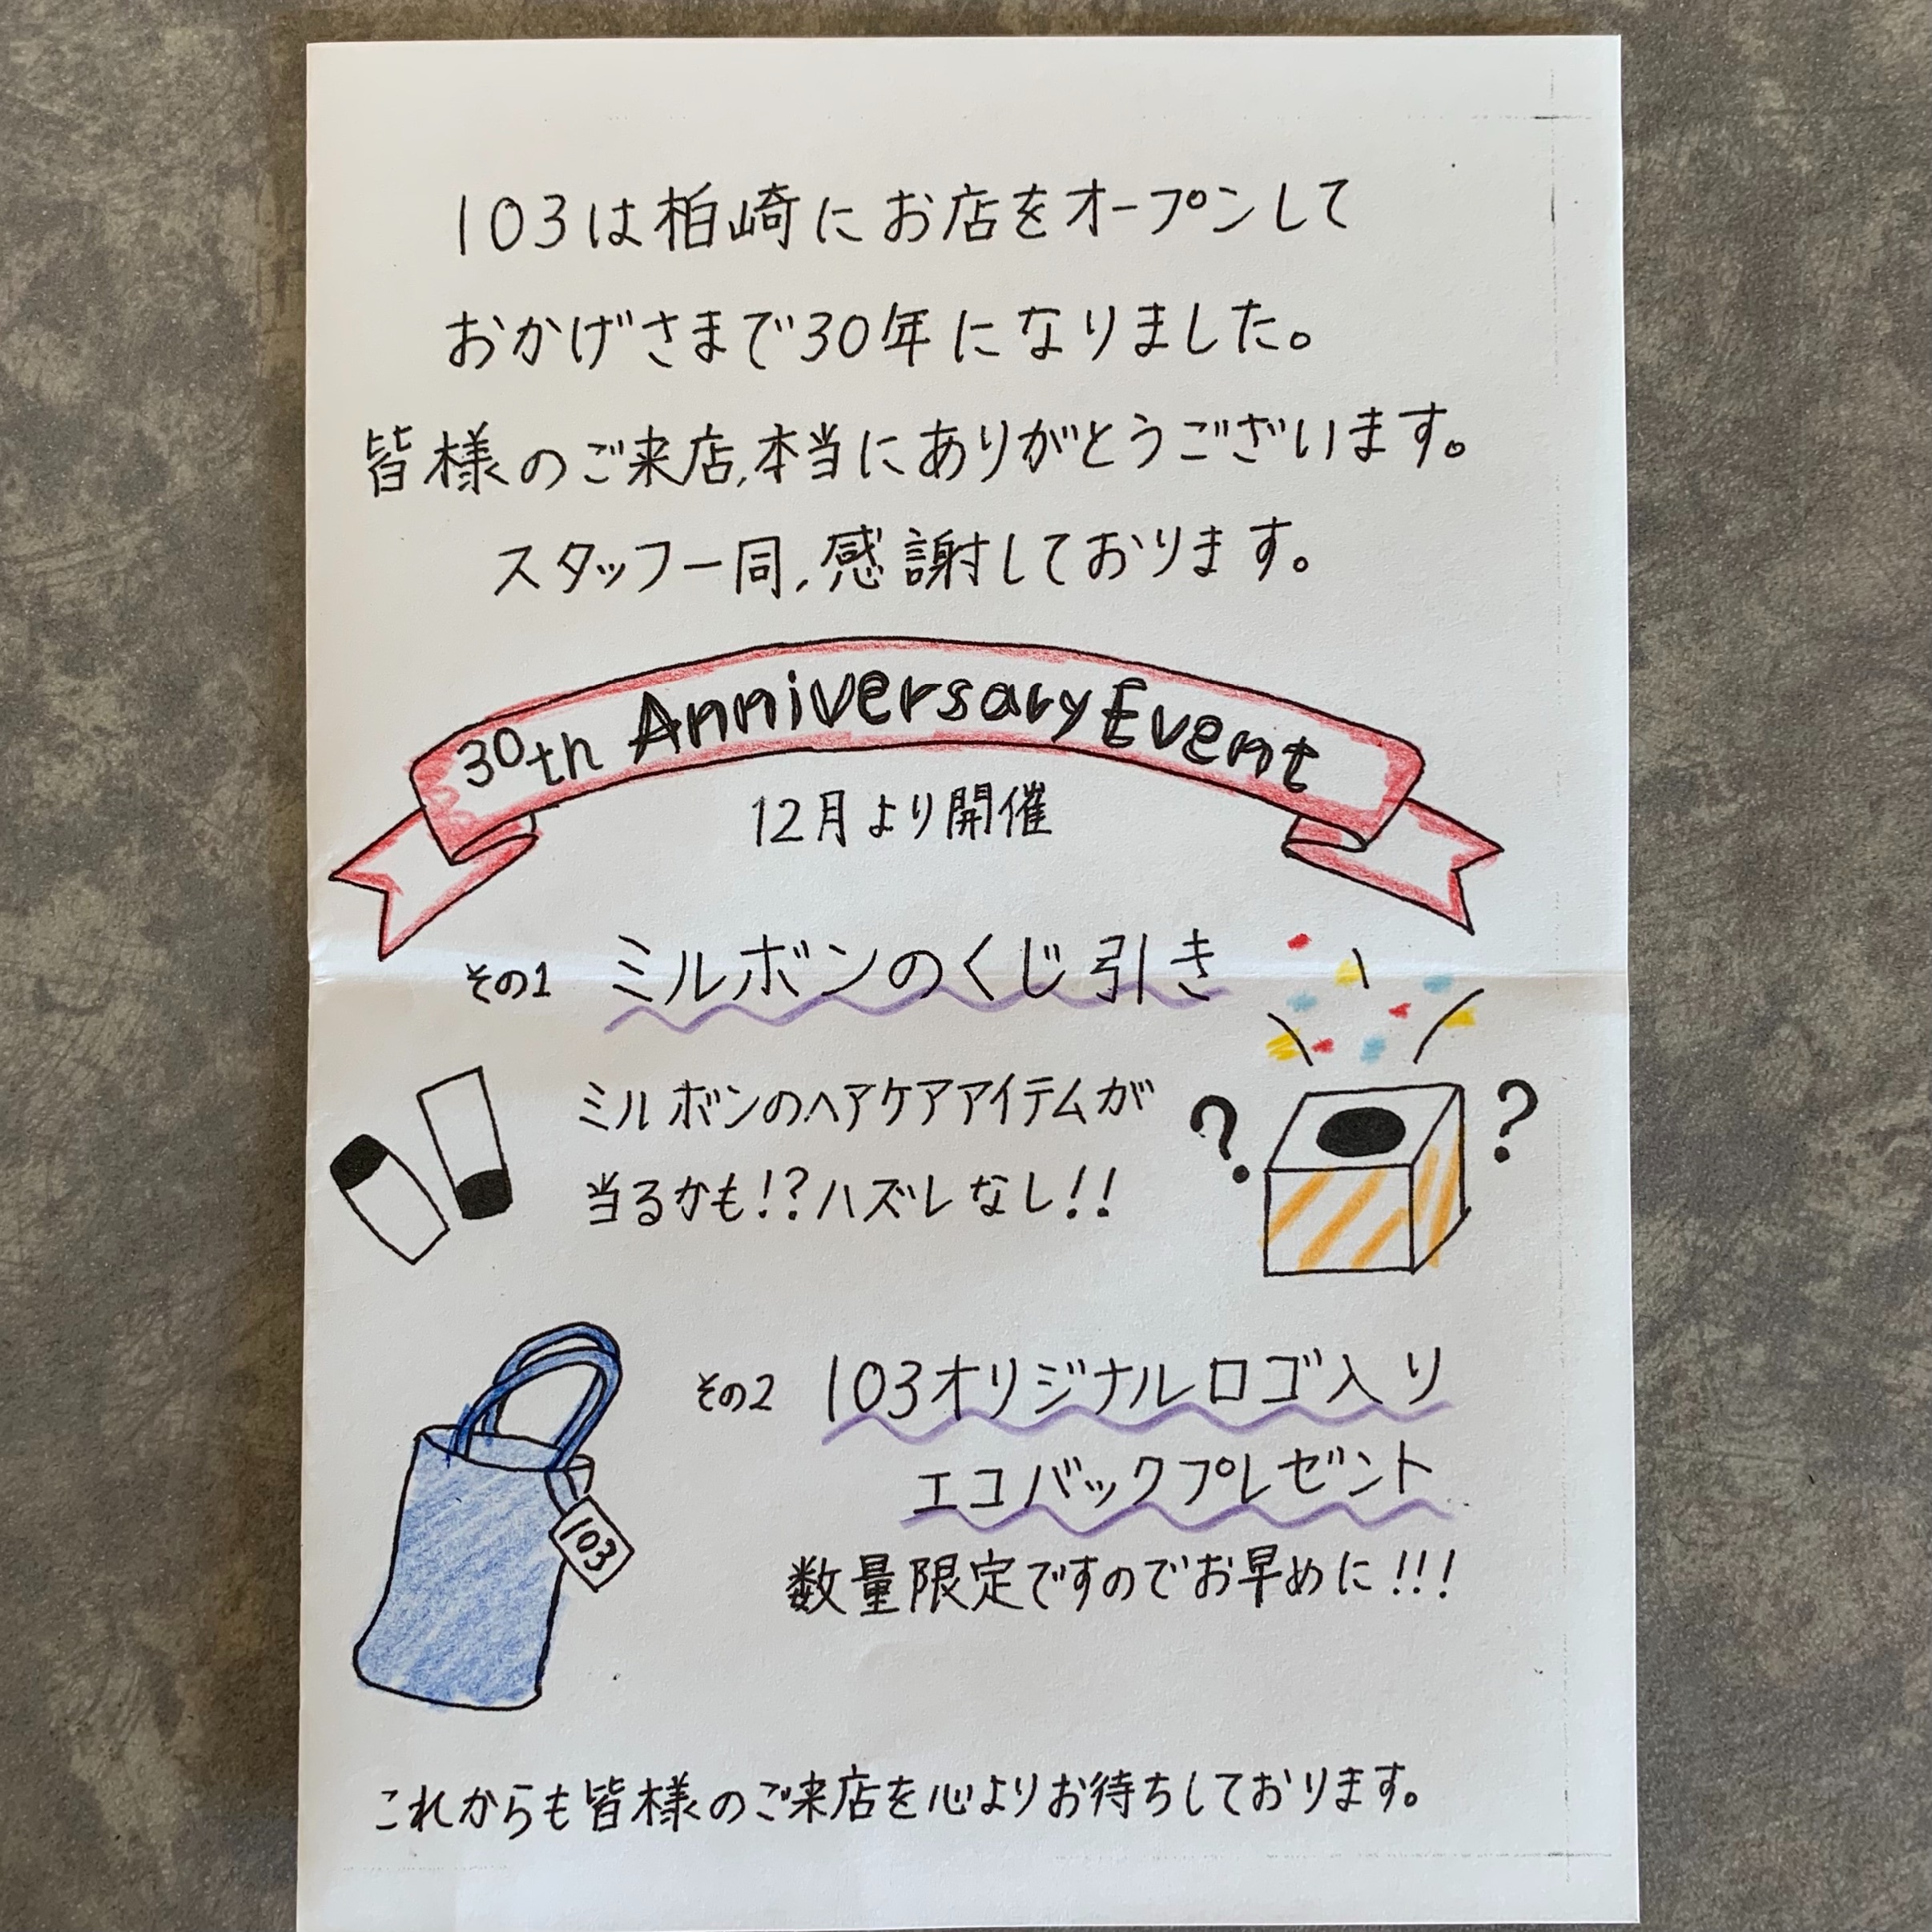 103は柏崎にお店をオープンして
おかげさまで30年になりました。
皆様のご来店、本当にありがとうございます。
スタッフ一同、感謝しております。
30th Anniversary Event
12月より開催
その1 ミルボンのくじ引き
ミルボンのヘアケアアイテムが
当るかも!?ハズレなし!!
? ?
その2 103オリジナルロゴ入り
エコバックプレゼント
103
数量限定ですのでお早めに!!!
これからも皆様のご来店を心よりお待ちしております。